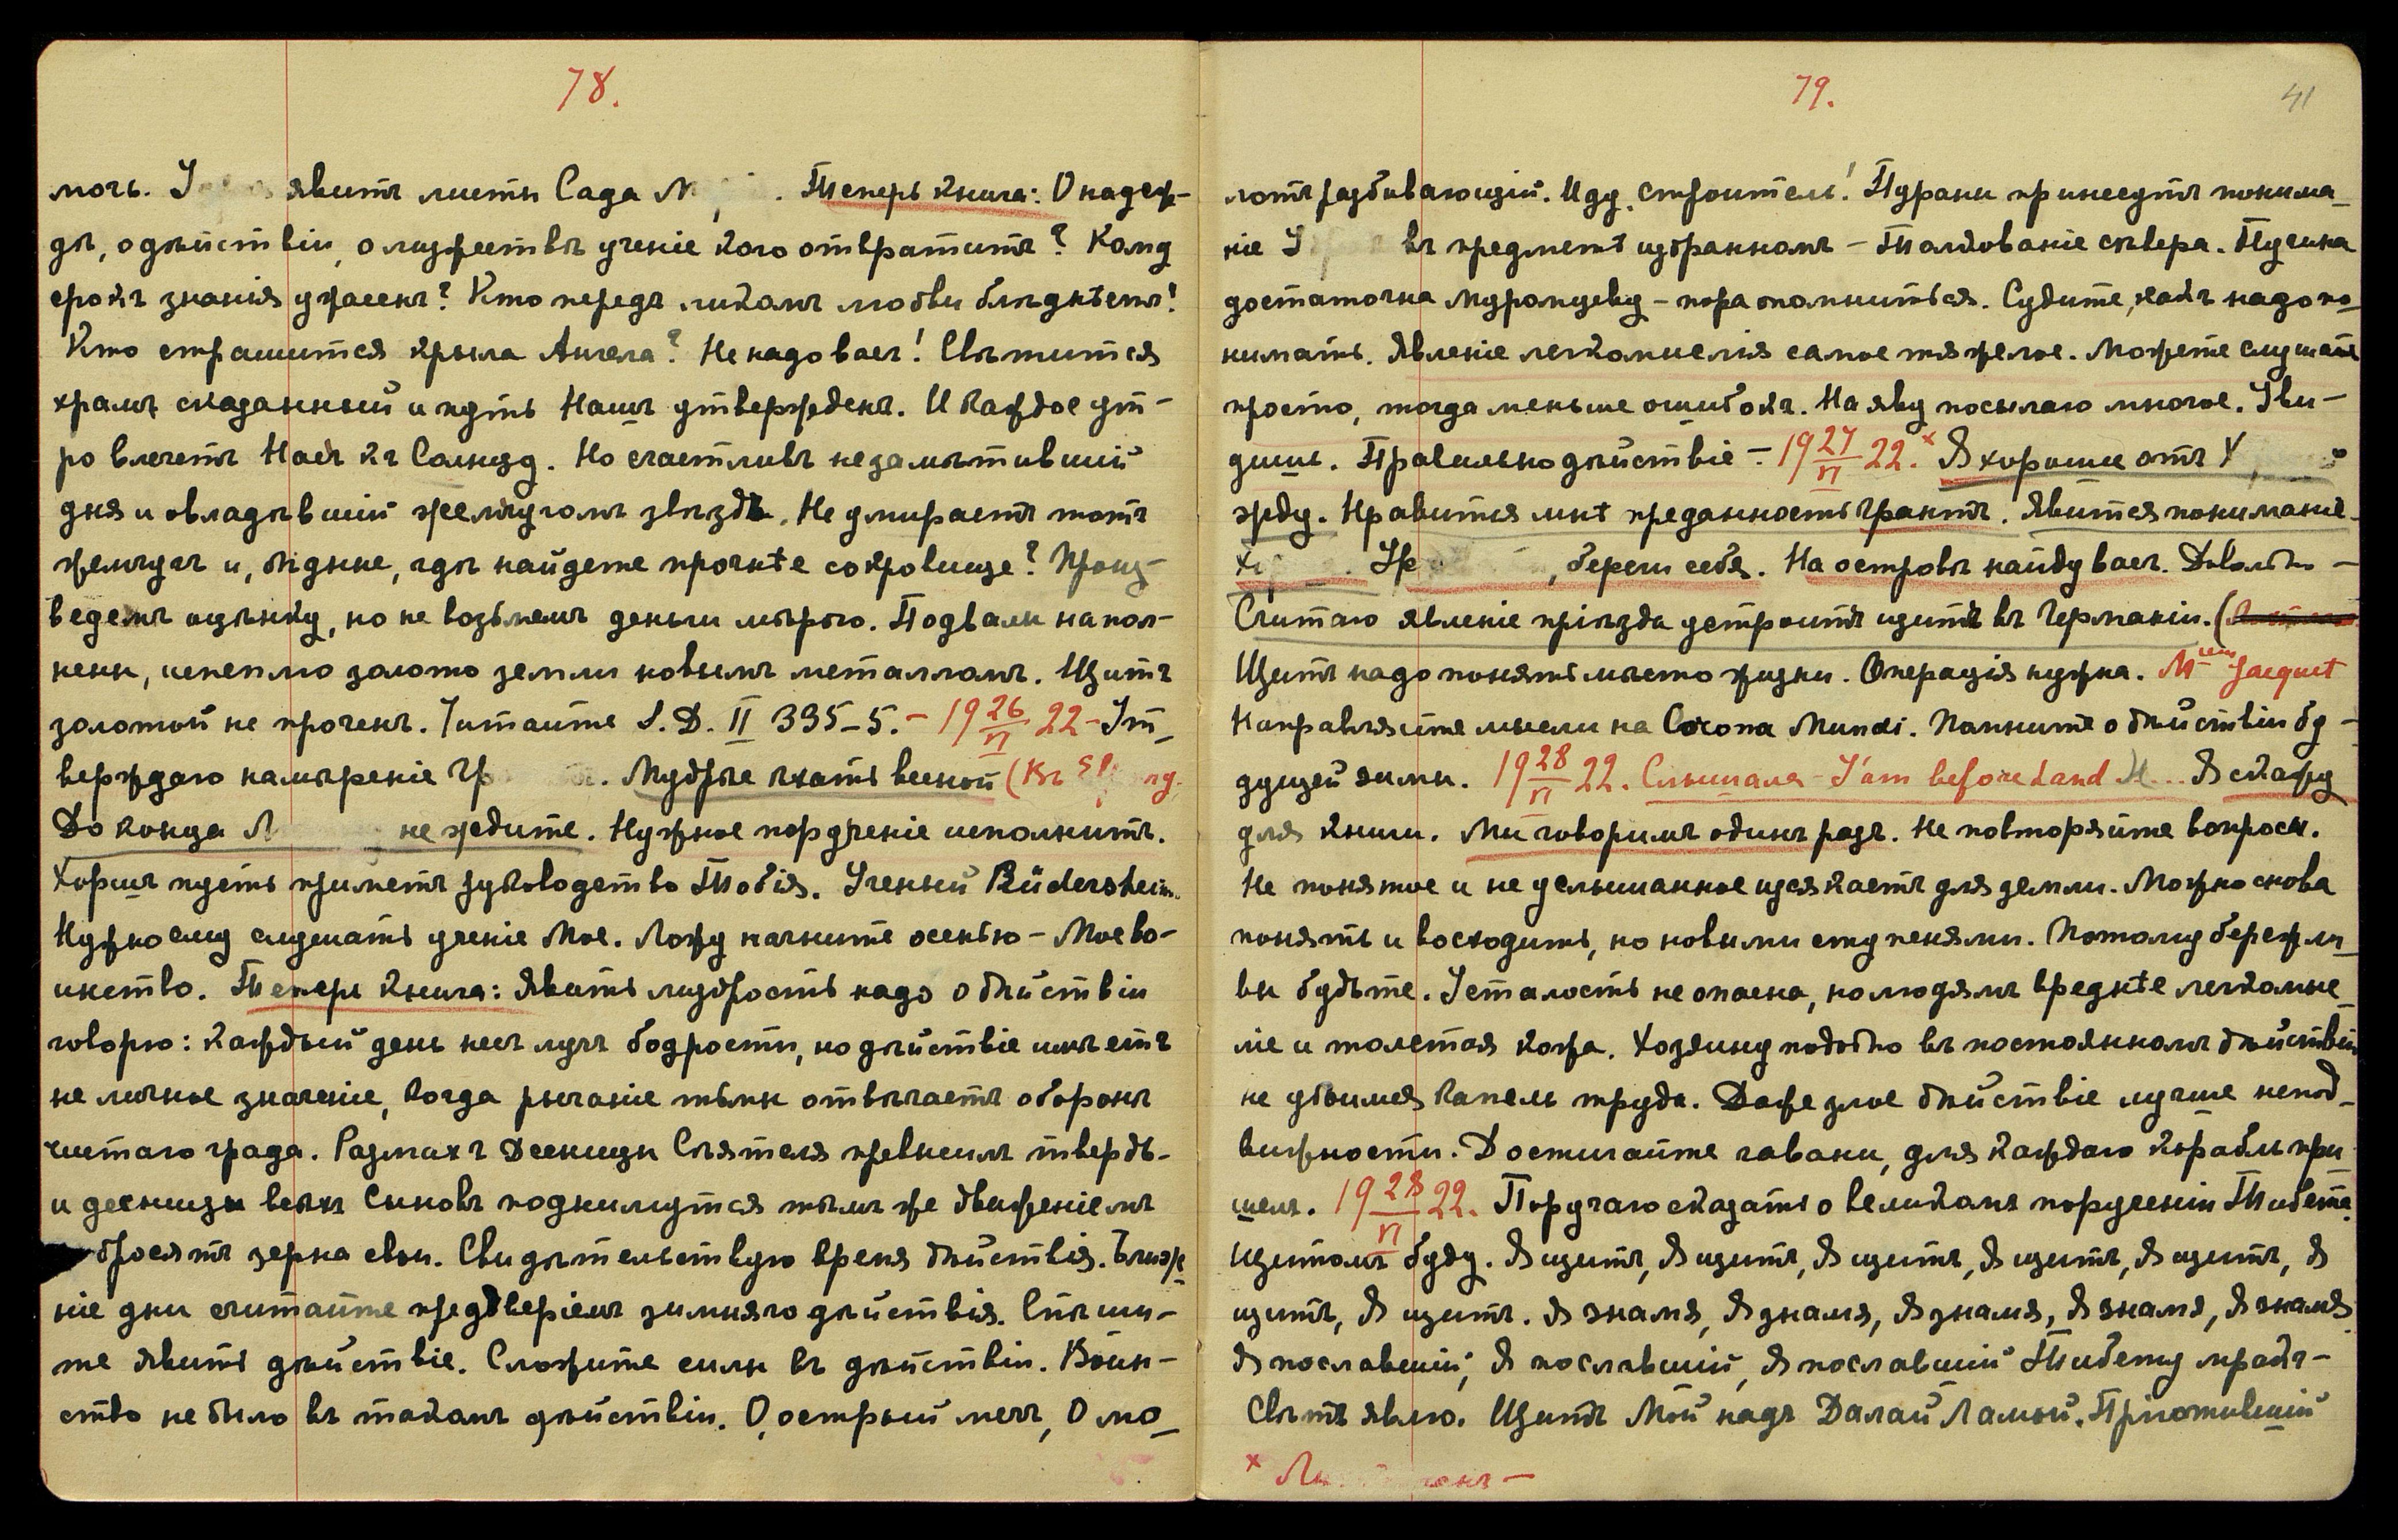 78.
мочь. явитъ листы Сада Теперь книга: О надеж-
дѣ, о дѣйствіи, о мужествѣ ученіе кого отвратитъ? Кому
срокъ знанія ужасенъ? Кто передъ ликомъ любви блѣднѣетъ!
Кто страшится крыла Ангела? Не надо васъ! Свѣтится
храмъ сказанный и путь Нашъ утвержденъ. И каждое ут-
ро влечетъ Насъ къ Солнцу. Но счастливъ незамѣтившій
дня и овладѣвшій жемчугомъ звѣздъ. Не умираетъ тотъ
жемчугъ и, бѣдные, гдѣ найдете прочнѣе сокровище? Произ-
ведемъ оцѣнку, но не возьмемъ деньги мѣрою. Подвалы напол-
нены, истеплю золото земли новымъ металломъ. Щитъ
золотой не проченъ. Читайте S.D. II 395-5. - 19 26/VI 22 - Ут-
верждаю намѣреніе Мудрые ѣхать весной (Къ
До конца не ждите. Нужное порученіе исполнитъ.
Хоршъ пусть приметъ руководство Тобія. Ученый Rüdersheim.
Нужно ему слушать ученіе Мое. Ложу начните осенью - Мое во-
инство. Теперь книга: Явить мудрость надо о дѣйствіи
говорю: каждый день несъ лучъ бодрости, но дѣйствіе имѣетъ
не личное значеніе, когда рычаніе тьмы отвѣчаетъ оборонѣ
чистаго града. Размахъ Десницы Сѣятеля превысилъ твердь -
и десницы всѣхъ Сыновъ поднимутся тѣмъ же движеніемъ
бросятъ зерна свои. Свидѣтельствую время дѣйствія. Ближ-
ніе дни считайте предверіемъ зимняго дѣйствія. Спѣши-
те явить дѣйствіе. Сложите силы въ дѣйствіи. Воин-
ство не было въ такомъ дѣйствіи. О, острый мечъ, О мо-
79.
41
лотъ разбивающій. Иду, строитель! Пураны принесутъ понима-
ніе въ предметѣ избранномъ - Толкованіе сѣвера. Пучина
достаточна Муромцеву - пора опомниться. Судите, какъ надо по-
нимать. Явленіе легкомыслія самое тяжелое. Можете слушать
просто, тогда меньше ошибокъ. На яву посылаю многое. Уви-
дишь. Правильно дѣйствіе - 19 27/VI 22. x Я хорошее отъ
жду. Нравится мнѣ преданность Грантъ. Явится пониманіе
, береги себя. На островѣ найду васъ. Довольно -
Считаю явленіе пріѣзда устроитъ щитъ въ Германіи. (
Щитъ надо понять мѣсто жизни. Операція нужна. Jacquet
Направляйте мысли на Corona Mundi. Помните о дѣйствіи бу-
дущей зимы. 19 28/VI 22. Слышала - I'am beforehand Я скажу
для книги. Мы говоримъ одинъ разъ. Не повторяйте вопросы.
Не понятое и не услышанное изсякаетъ для земли. Можно снова
понять и восходить, но новыми ступенями. Потому бережли-
вы будьте. Усталость не опасна, но людямъ вреднѣе легкомыс-
ліе и толстая кожа. Хозяину подобно въ постоянномъ дѣйствіи
не убоимся капель труда. Даже злое дѣйствіе лучше непод-
вижности. Достигайте гавани, для каждаго корабль при-
шелъ. 19 28/VI 22. Поручаю сказать о великомъ порученіи Тибета.
Щитомъ буду. Я щитъ, Я щитъ, Я щитъ, Я щитъ, Я щитъ, Я
щитъ, Я щитъ. Я знамя, Я знамя, Я знамя, Я знамя, Я знамя
Я пославшій, Я пославшій, Я пославшій Тибету мракъ -
Свѣтъ явлю. Щитъ Мой надъ Далай Ламой. Пріютившій
x